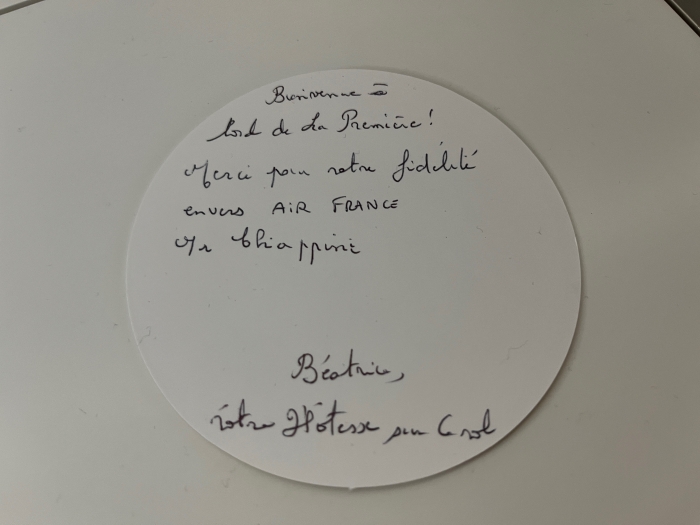 Bienvenue à
bord de La Première !
Merci pour votre fidélité
envers AIR FRANCE
Mr Chiappini
Béatrice,
votre Hôtesse sur ce vol